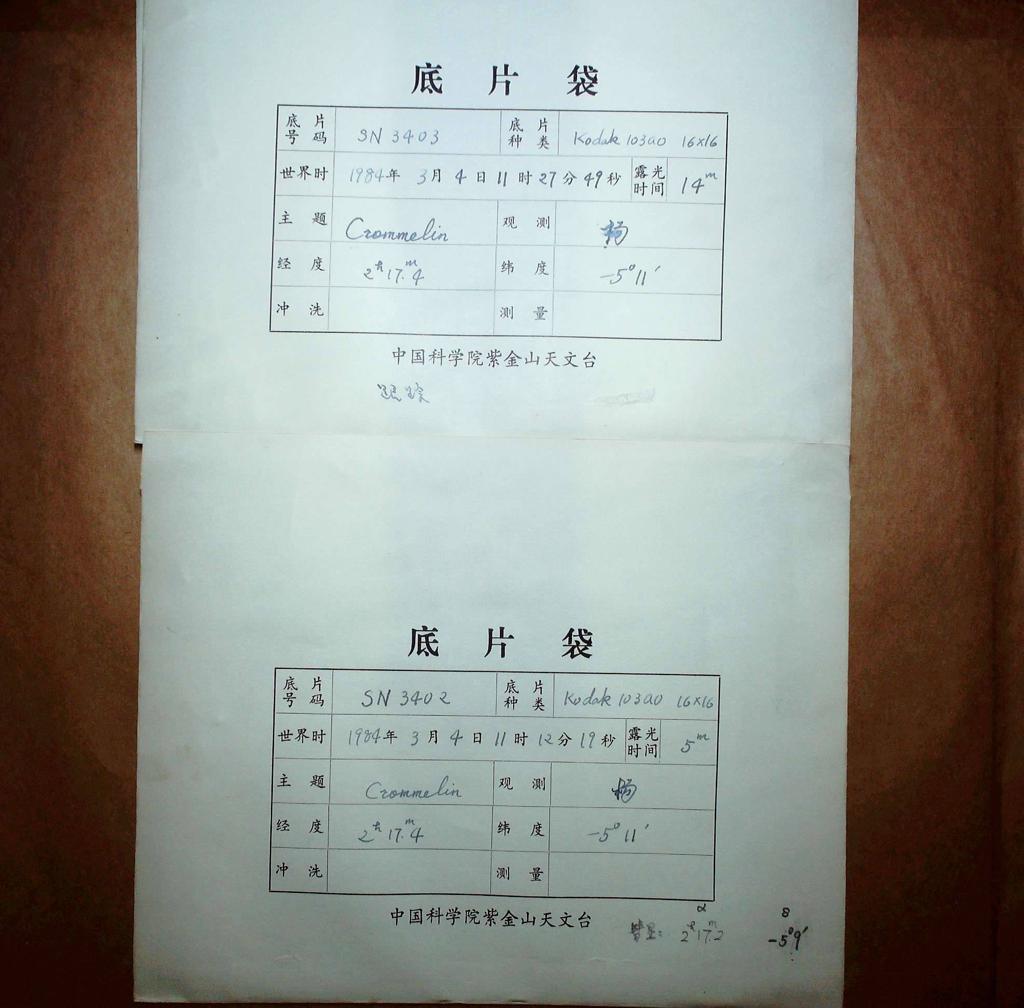 底片袋
底片号码 SN 3403 底片种类 Kodak 103aO 16×16
世界时 1984年 3月 4日 11时 27分 49秒 露光时间 14ᵐ
主题 Crommelin 观测 杨
经度 2ʰ17ᵐ.4 纬度 -5°11′
冲洗 测量
中国科学院紫金山天文台
跟踪
底片袋
底片号码 SN 3402 底片种类 Kodak 103aO 16×16
世界时 1984年 3月 4日 11时 12分 19秒 露光时间 5ᵐ
主题 Crommelin 观测 杨
经度 2ʰ17ᵐ.4 纬度 -5°11′
冲洗 测量
中国科学院紫金山天文台
α δ
彗星: 2ʰ17ᵐ.2 -5°9′